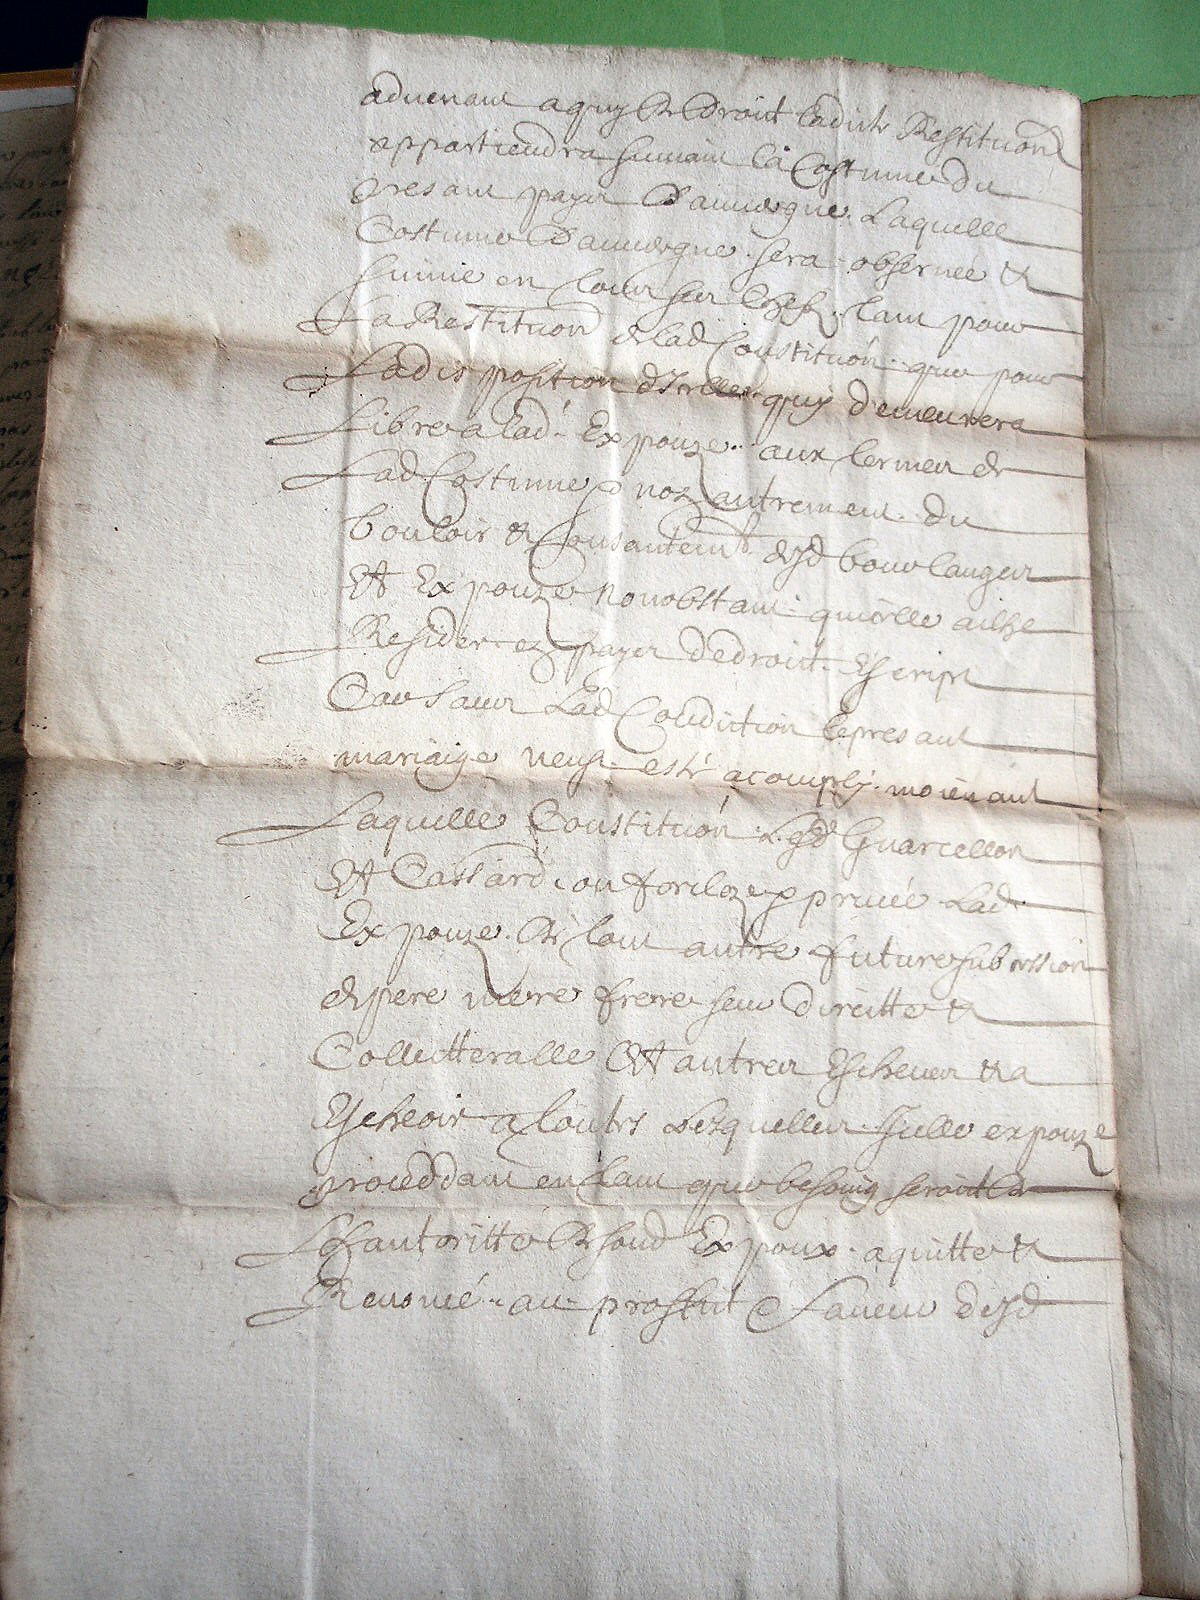 advenant a quy de droict ladicte Restitution
appartiendra suivant la Costume du
presant payis d'auvergne. Laquelle
Costume d'auvergne sera observée et
suivie en tout sur tant pour
La Restitution de lad Constitution que pour
La disposition d'Icelle quy demeurera
Libre a lad Expouze aux termes de
Lad Costume & non autrement du
vouloir & Consantemt desd boulanger
Et Expouze nonobstant qu'elle aille
Resider en payis de droit Escript
Car sans Lad Condiction le presant
mariaige neust esté acomply moienant
Laquelle Constitution Lesd Guarcellon
Et Cassard ont forcloze & privée Lad
Expouze de tout autre future subcession
de pere mere frere seur directte &
Collectteralle Et autres Escheues & a
Escheoir a toutes Lesquelles Icelle expouze
proceddant en tant que besoing seroit de
L'autoritté de sond Expoux a quitté &
Renoncé au proffit & faveur desd